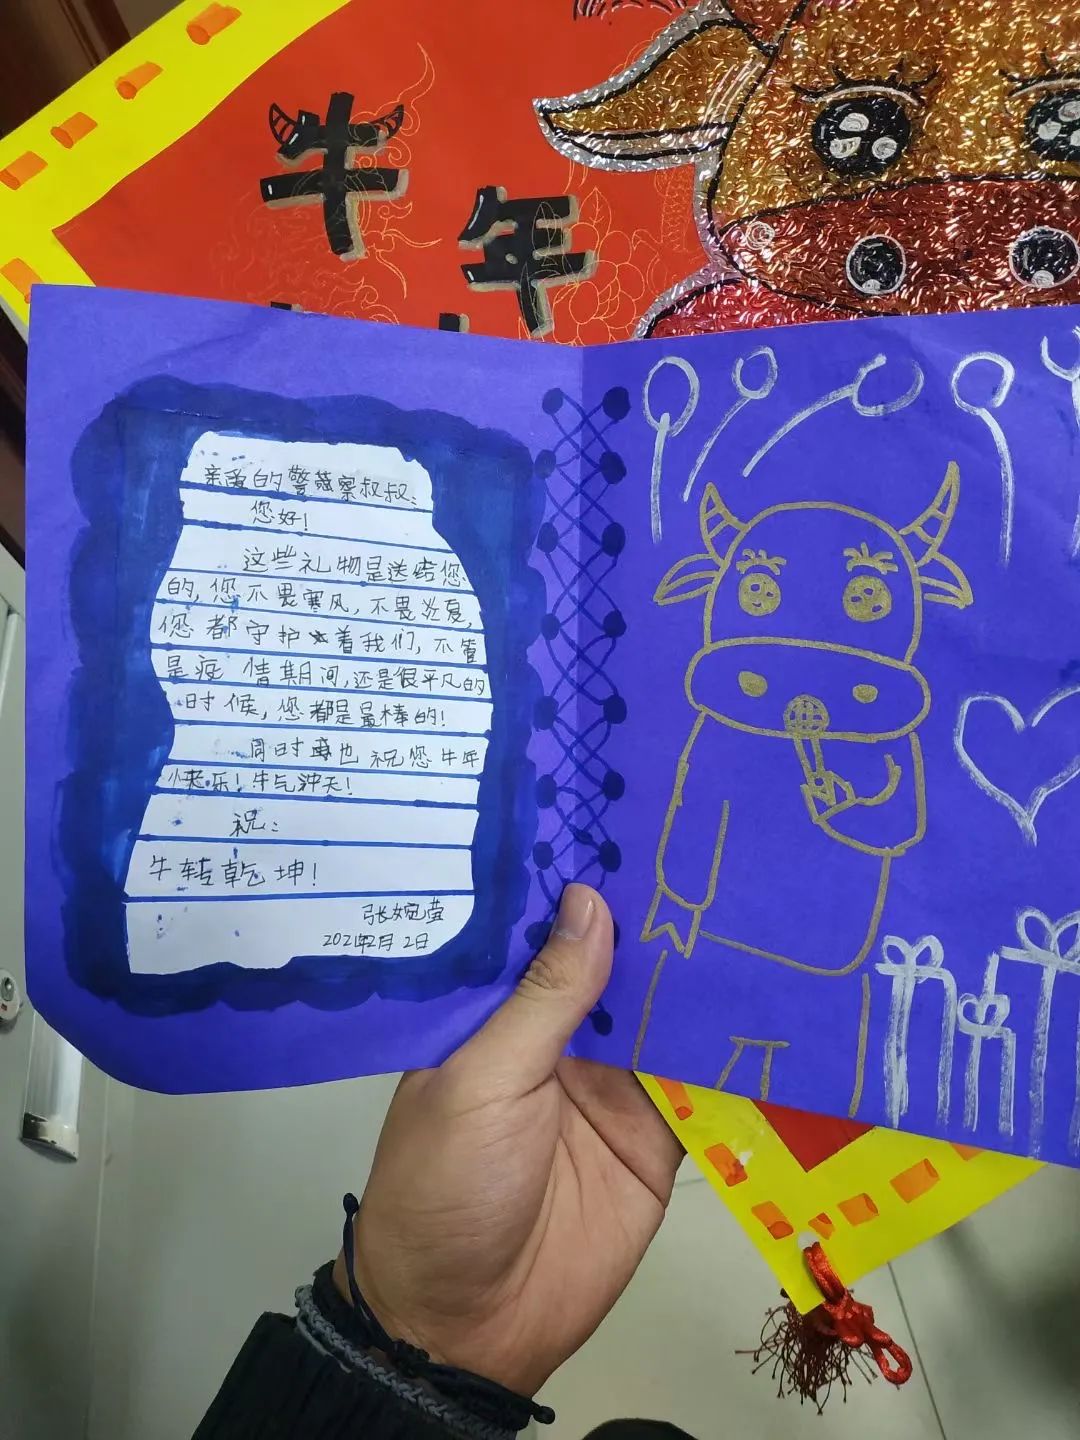 牛年
亲爱的警察叔叔:
您好!
这些礼物是送给您
的,您不畏寒风,不畏炎夏,
您都守护着我们,不管
是疫情期间,还是很平凡的
时候,您都是最棒的!
同时也祝您牛年
快乐!牛气冲天!
祝:
牛转乾坤!
张婉莹
2021年2月2日